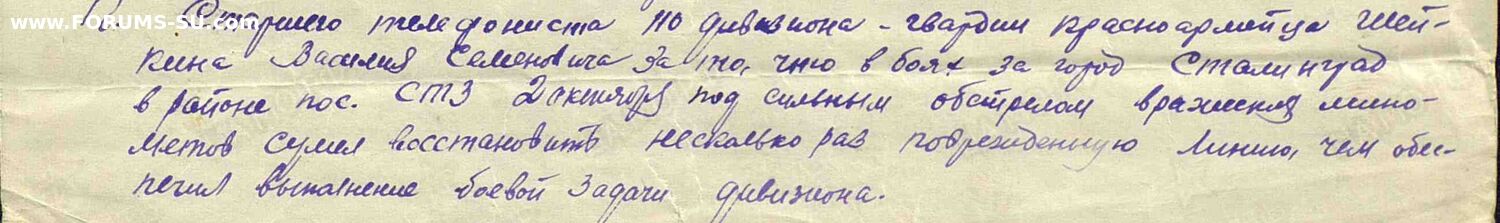 www.FORUMS-SU.com
Старшего телефониста 110 дивизиона - гвардии красноармейца Шей-
кина Василия Семеновича за то, что в боях за город Сталинград
в районе пос. СТЗ 2 октября под сильным обстрелом вражеских мино-
метов сумел восстановить несколько раз поврежденную линию, чем обес-
печил выполнение боевой задачи дивизиона.